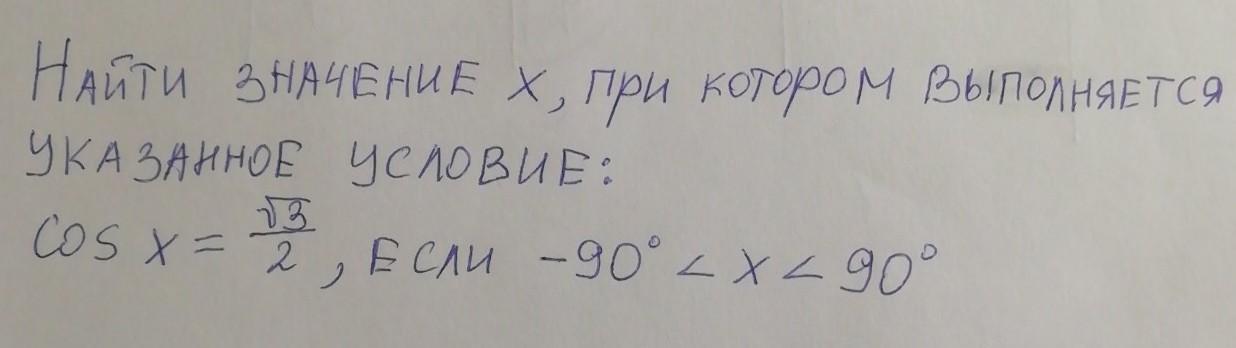 Найти значение x, при котором выполняется
указанное условие:
cos x = √3/2, если -90° < x < 90°